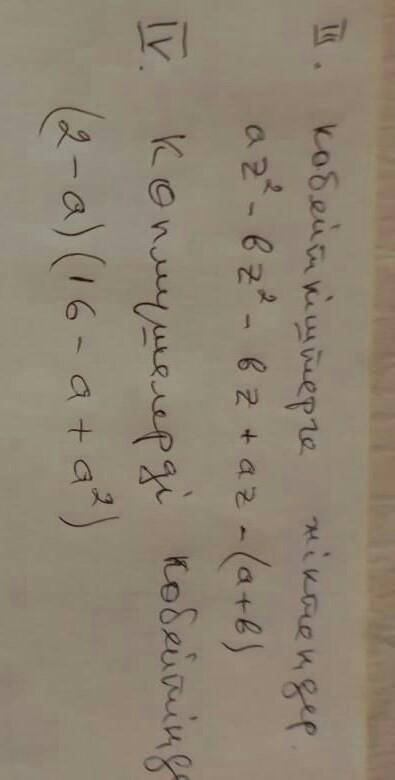 III. көбейткіштерге жіктеңдер.
az² - bz² - bz + az - (a+b)
IV. Көпмүшелерді көбейтіңде
(2 - a)(16 - a + a²)